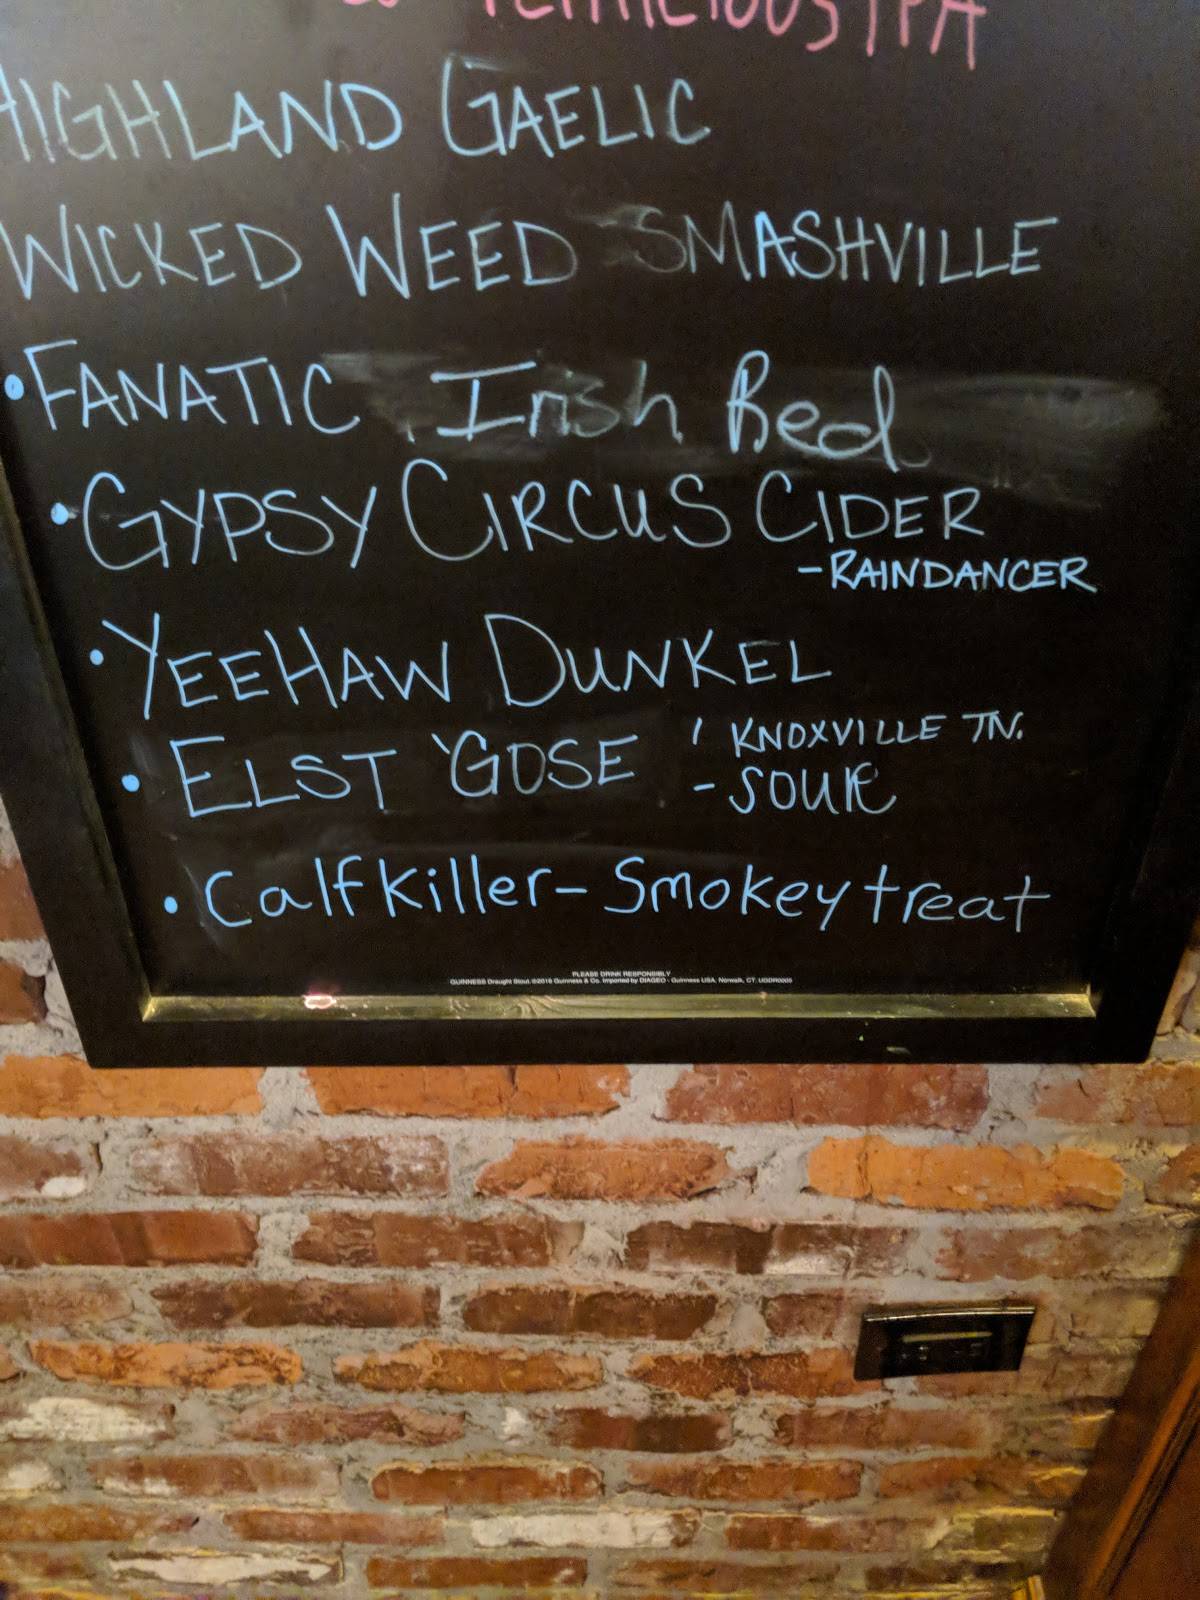 IPA
HIGHLAND GAELIC
WICKED WEED SMASHVILLE
• FANATIC Irish Red
• GYPSY CIRCUS CIDER
- RAINDANCER
• YEEHAW DUNKEL
• ELST 'GOSE ' KNOXVILLE TN.
- SOUR
• Calfkiller - Smokey treat
PLEASE DRINK RESPONSIBLY
GUINNESS Draught Stout ©2016 Guinness & Co. Imported by DIAGEO - Guinness USA, Norwalk, CT.